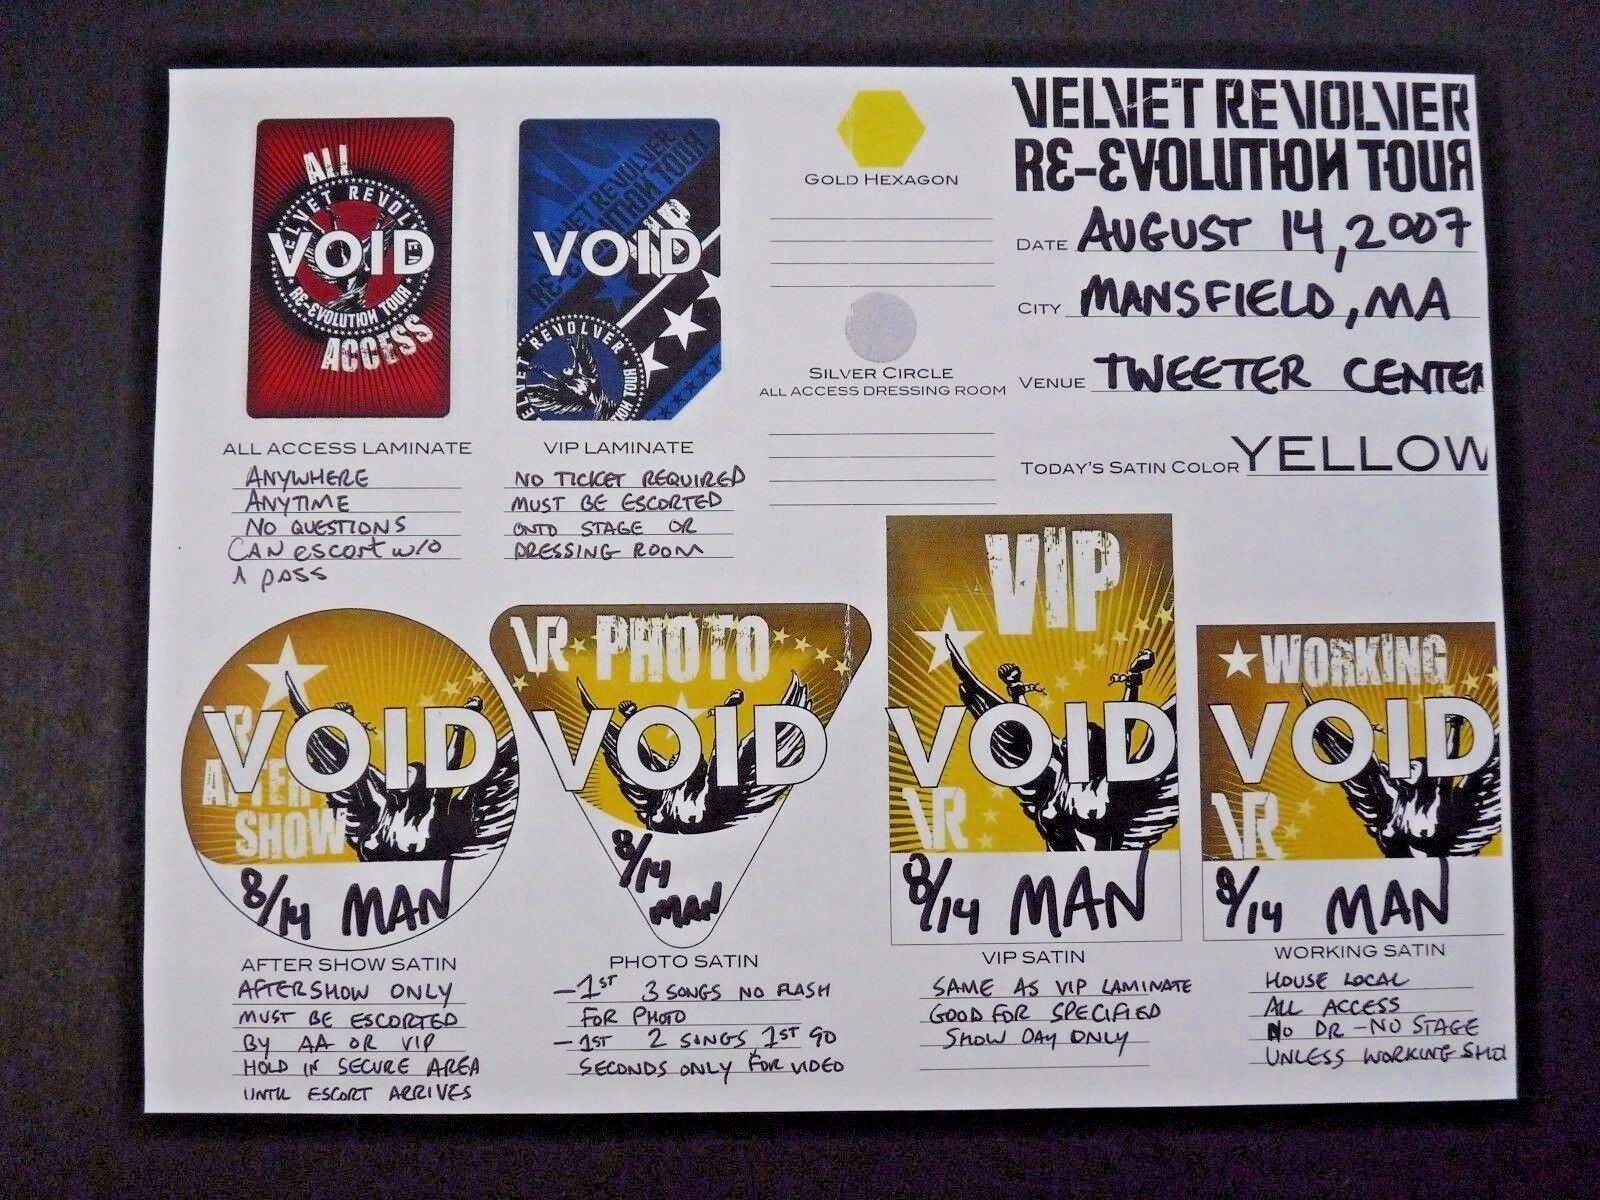 VELVET REVOLVER
RE-EVOLUTION TOUR
DATE AUGUST 14, 2007
CITY MANSFIELD, MA
VENUE TWEETER CENTER
TODAY'S SATIN COLOR YELLOW
ALL
VELVET REVOLVER
VOID
RE-EVOLUTION TOUR
ACCESS
ALL ACCESS LAMINATE
ANYWHERE
ANYTIME
NO QUESTIONS
CAN escort w/o
A pass
VELVET REVOLVER
RE-EVOLUTION TOUR
VIP
VOID
VELVET REVOLVER
TION TOUR
VIP LAMINATE
NO TICKET REQUIRED
MUST BE ESCORTED
ONTO STAGE OR
DRESSING ROOM
GOLD HEXAGON
SILVER CIRCLE
ALL ACCESS DRESSING ROOM
VR
VOID
AFTER
SHOW
8/14 MAN
AFTER SHOW SATIN
AFTERSHOW ONLY
MUST BE ESCORTED
BY AA OR VIP
HOLD IN SECURE AREA
UNTIL ESCORT ARRIVES
VR PHOTO
VOID
8/14
MAN
PHOTO SATIN
-1ST 3 SONGS NO FLASH
FOR PHOTO
-1ST 2 SONGS, 1ST 90
SECONDS ONLY FOR VIDEO
VIP
VOID
VR
8/14 MAN
VIP SATIN
SAME AS VIP LAMINATE
GOOD FOR SPECIFIED
SHOW DAY ONLY
WORKING
VOID
VR
8/14 MAN
WORKING SATIN
HOUSE LOCAL
ALL ACCESS
NO DR - NO STAGE
UNLESS WORKING SHO